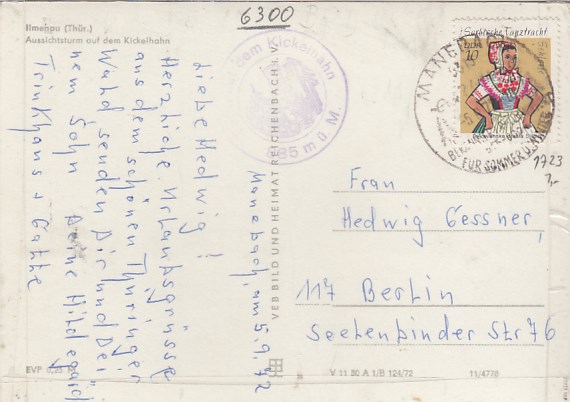 6300
Ilmenau (Thür.)
Aussichtsturm auf dem Kickelhahn
dem Kickelhahn
m ü. M.
Manebach, am 5.9.72
Liebe Hedwig!
Herzliche Urlaubsgrüsse
aus dem schönen Thüringer
Wald senden Dir und Dei-
nem Sohn Deine Hildegard
Trinkhaus + Gatte
EVP 0,25
VEB BILD UND HEIMAT REICHENBACH i. V.
V 11 50 A 1/B 124/72
11/4778
Sorbische Tanztracht
DDR
10
MANEBACH
FÜR SOMMER U. WINTER
1723
Frau
Hedwig Gessner,
117 Berlin
Seelenbinder Str 76